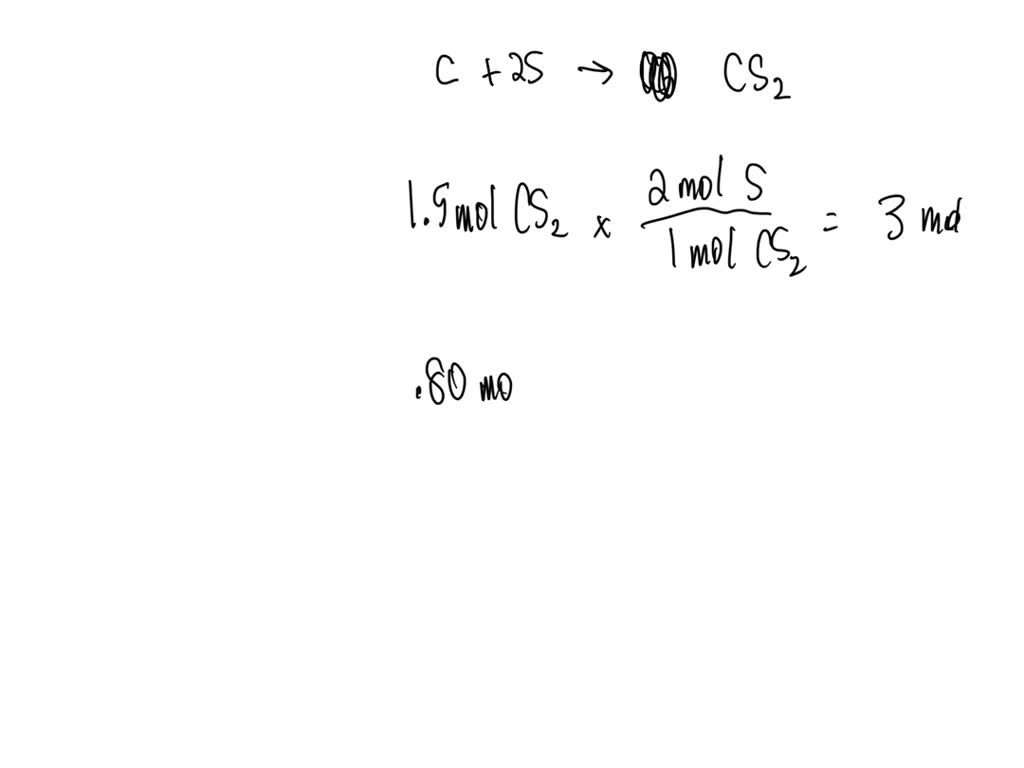 C + 2S → CS₂
1.5 mol CS₂ x 2 mol S / 1 mol CS₂ = 3 mol
.80 mo